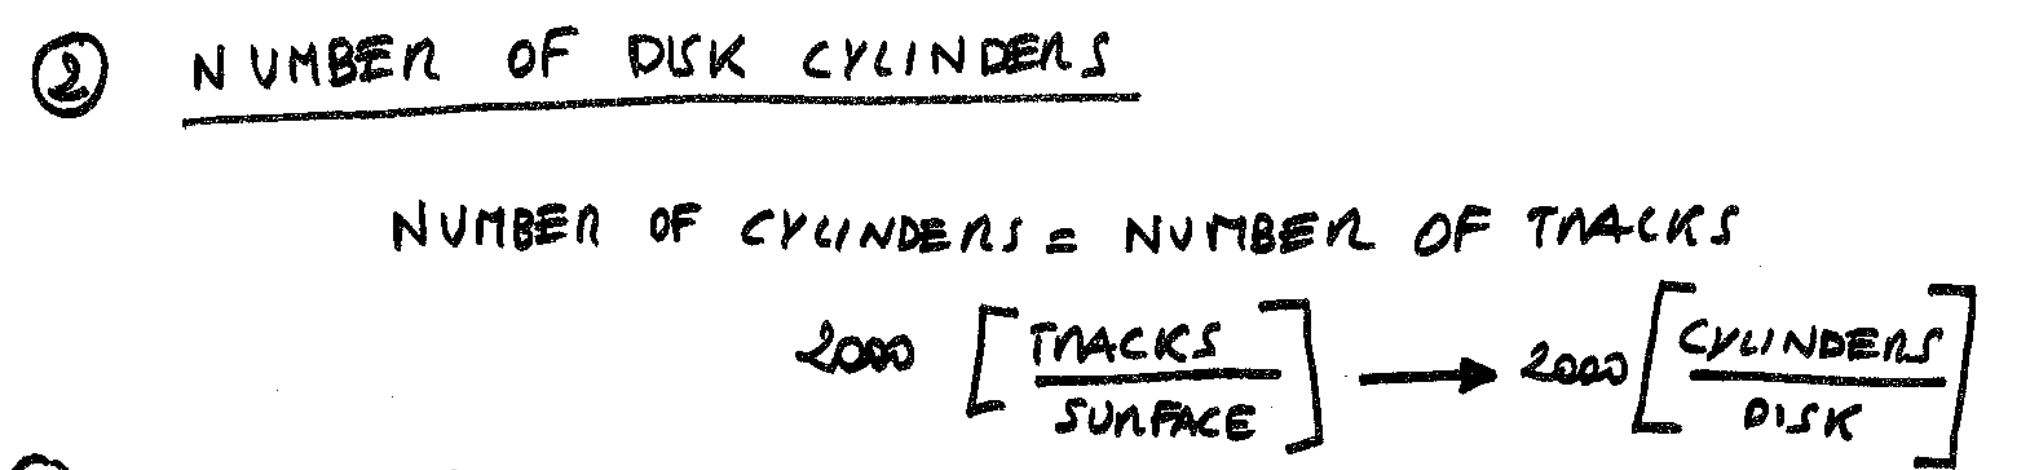 ② NUMBER OF DISK CYLINDERS
NUMBER OF CYLINDERS = NUMBER OF TRACKS
2000 [TRACKS / SURFACE] → 2000 [CYLINDERS / DISK]